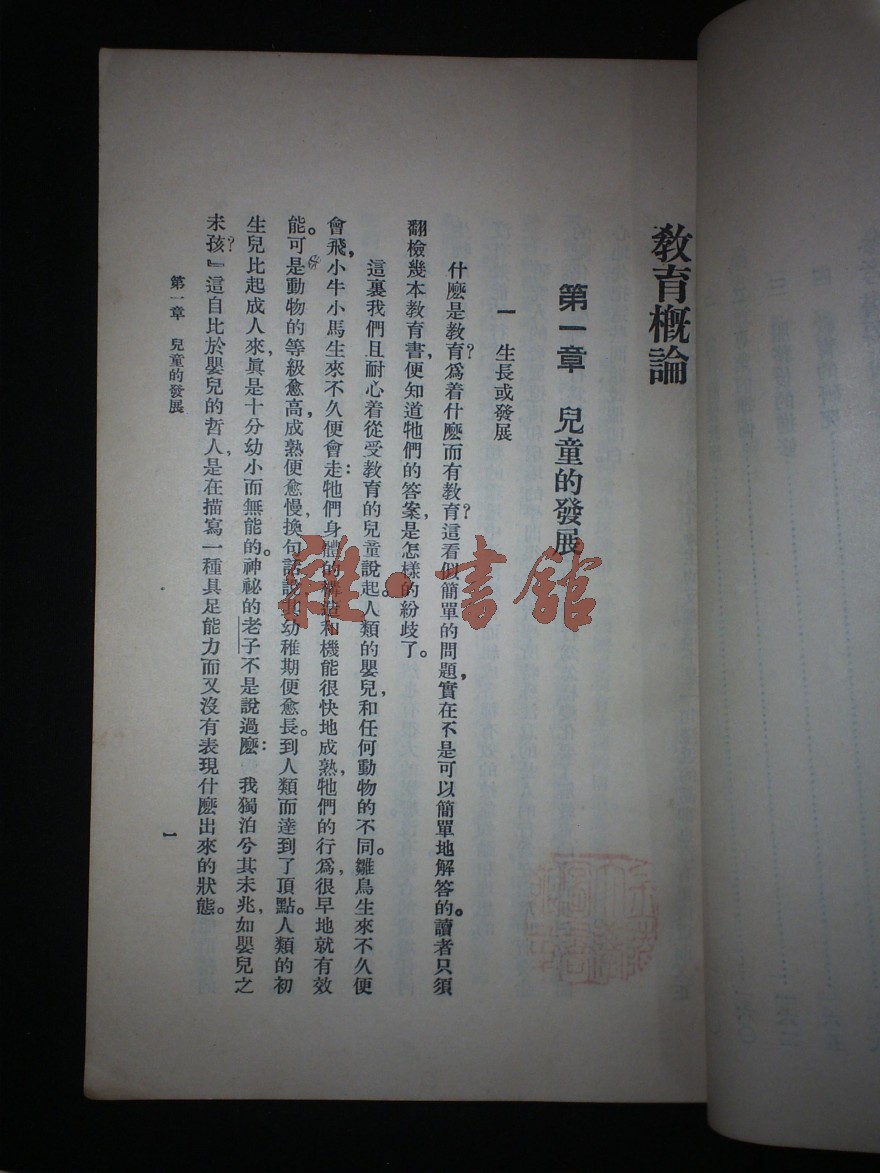 教育概論
第一章　兒童的發展
一　生長或發展
什麽是教育？爲着什麽而有教育？這看似簡單的問題，實在不是可以簡單地解答的。讀者只須
翻檢幾本教育書，便知道牠們的答案，是怎樣的紛歧了。
這裏我們且耐心着從受教育的兒童說起。人類的嬰兒，和任何動物的不同。雛鳥生來不久便
會飛，小牛小馬生來不久便會走：牠們身體的構造和機能很快地成熟，牠們的行爲，很早地就有效
能。可是動物的等級愈高，成熟便愈慢，換句話說，其幼稚期便愈長。到人類而達到了頂點。人類的初
生兒比起成人來，眞是十分幼小而無能的。神祕的老子不是說過麽：　我獨泊兮其未兆，如嬰兒之
未孩？』這自比於嬰兒的哲人，是在描寫一種具足能力而又沒有表現什麽出來的狀態。
第一章　兒童的發展
1
雜·書館